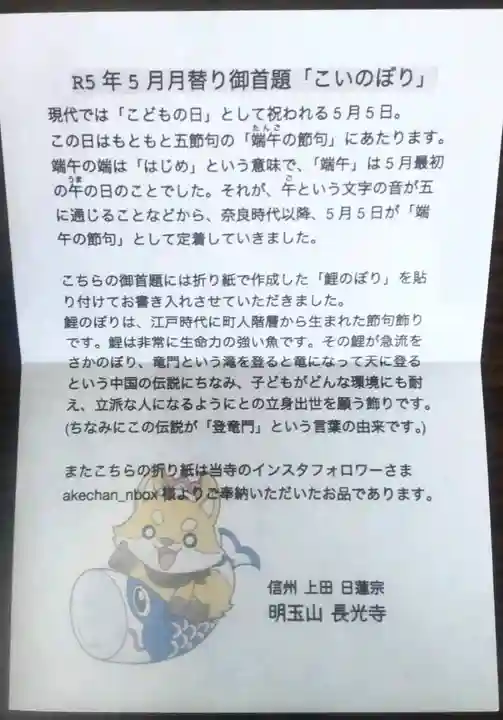 R5年5月月替り御首題「こいのぼり」
現代では「こどもの日」として祝われる5月5日。
この日はもともと五節句の「端午の節句」にあたります。
たんご
端午の端は「はじめ」という意味で、「端午」は5月最初
の午の日のことでした。それが、午という文字の音が五
うま
ご
に通じることなどから、奈良時代以降、5月5日が「端
午の節句」として定着していきました。
こちらの御首題には折り紙で作成した「鯉のぼり」を貼
り付けてお書き入れさせていただきました。
鯉のぼりは、江戸時代に町人階層から生まれた節句飾り
です。鯉は非常に生命力の強い魚です。その鯉が急流を
さかのぼり、竜門という滝を登ると竜になって天に登る
という中国の伝説にちなみ、子どもがどんな環境にも耐
え、立派な人になるようにとの立身出世を願う飾りです。
(ちなみにこの伝説が「登竜門」という言葉の由来です。)
またこちらの折り紙は当寺のインスタフォロワーさま
akechan_nbox 様よりご奉納いただいたお品であります。
信州 上田 日蓮宗
明玉山 長光寺